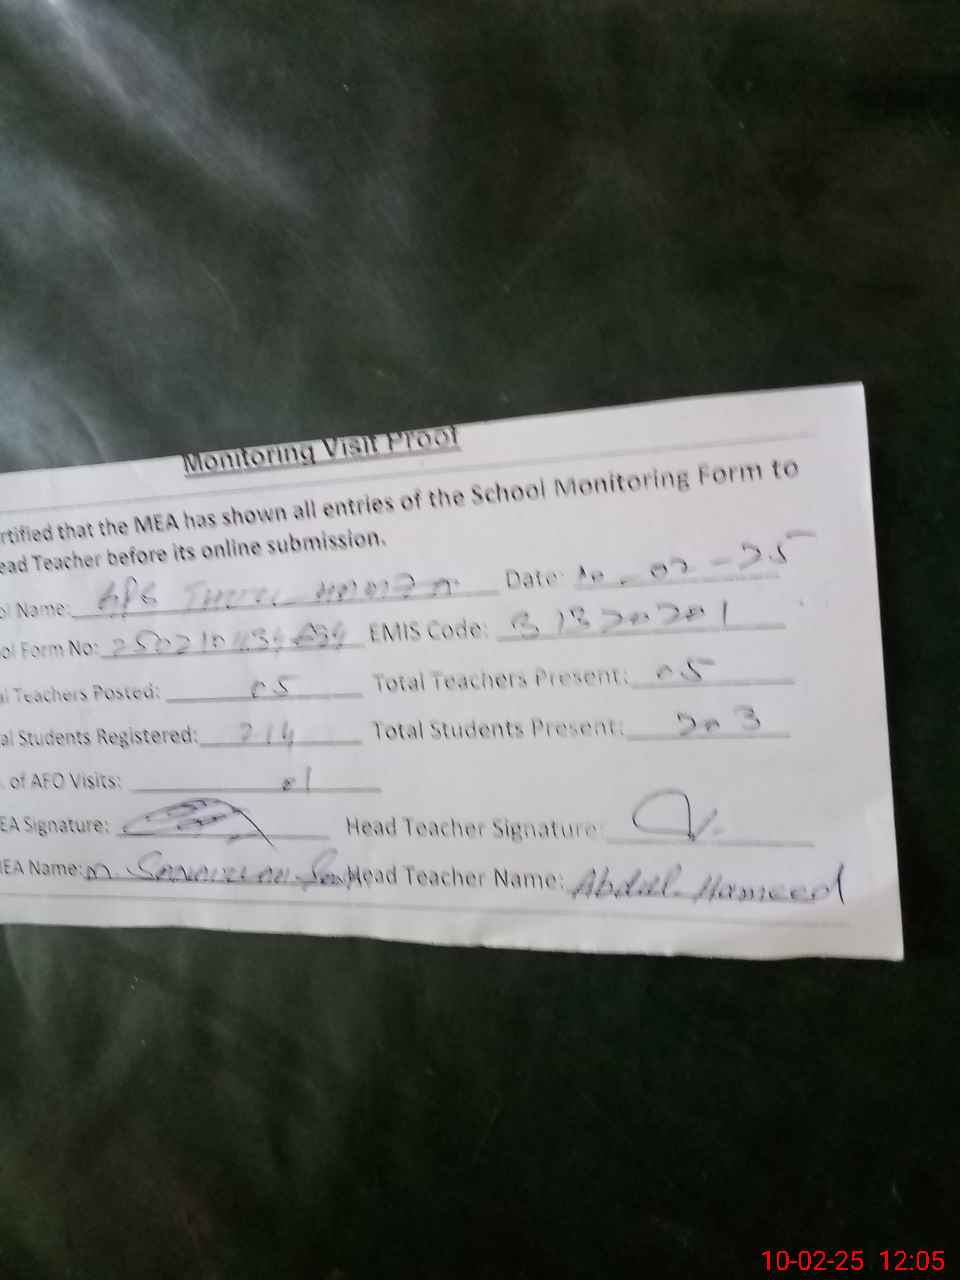 Monitoring Visit Proof
rtified that the MEA has shown all entries of the School Monitoring Form to
ead Teacher before its online submission.
ol Name: GPS Date: 10-02-25
ol Form No: EMIS Code: 31320201
al Teachers Posted: 05 Total Teachers Present: 05
al Students Registered: 214 Total Students Present: 203
. of AEO Visits: 01
EA Signature: Head Teacher Signature:
MEA Name: M. Head Teacher Name: Abdul Hameed
10-02-25 12:05